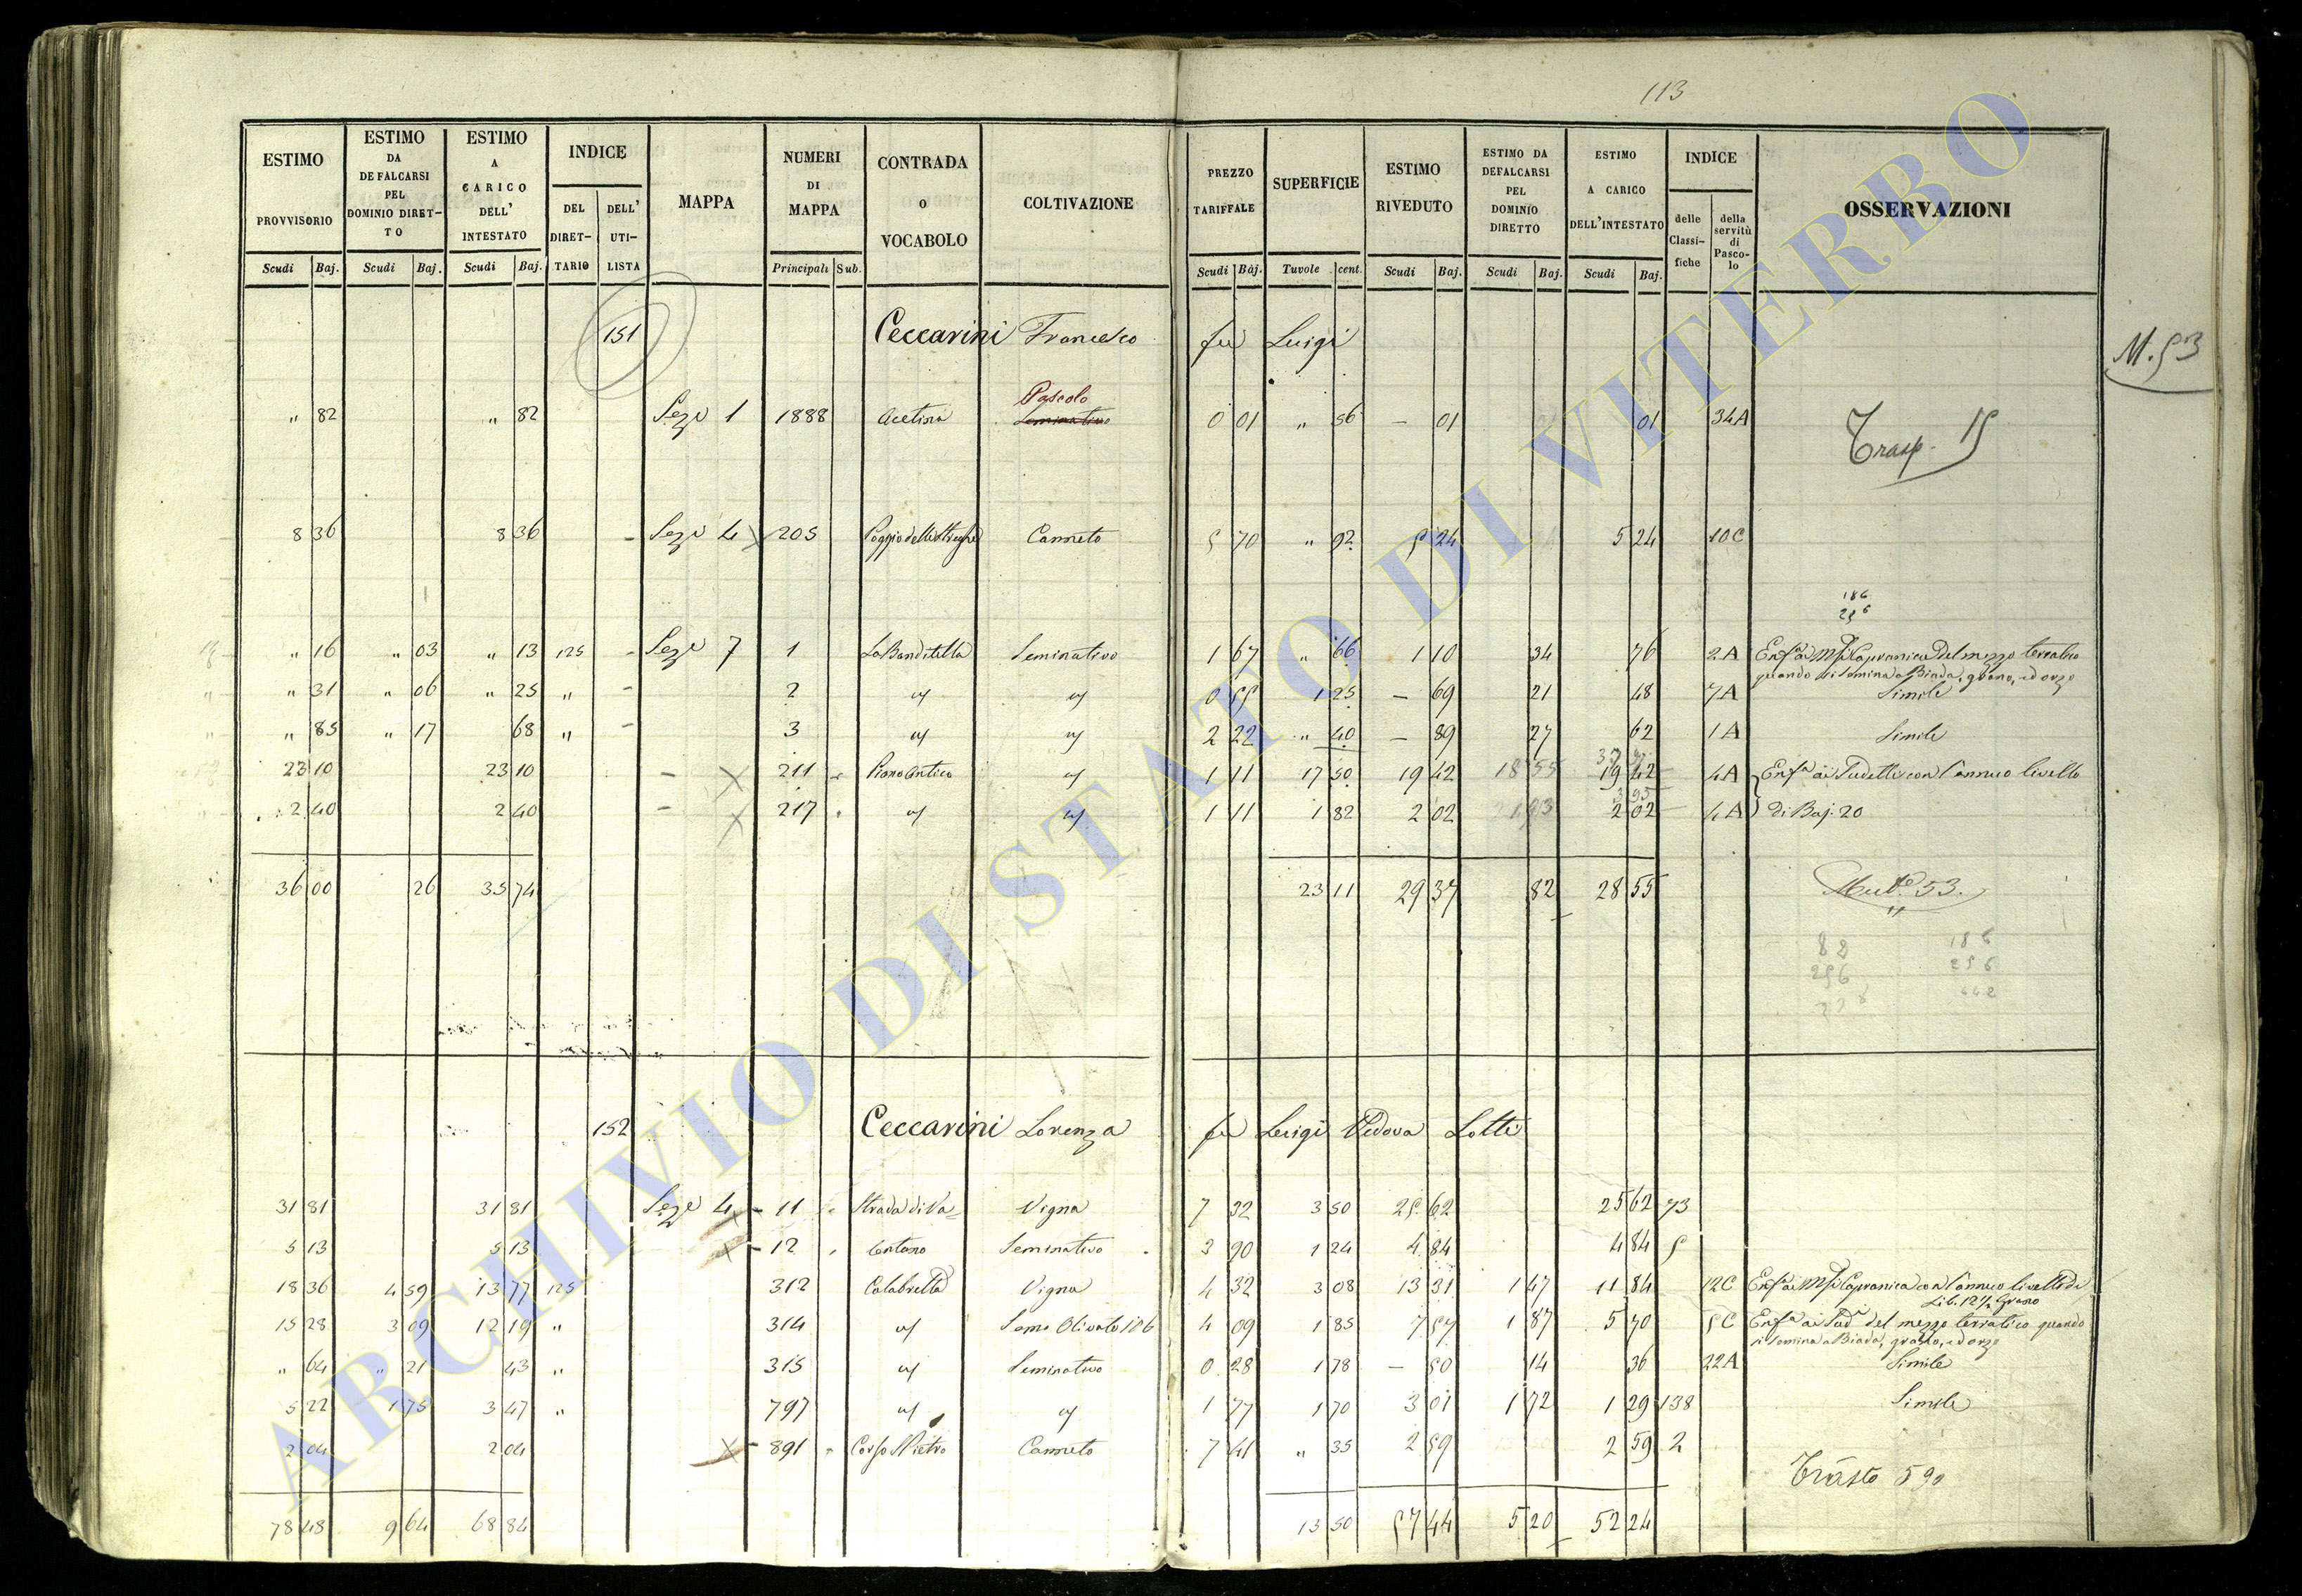 113
ESTIMO PROVVISORIO Scudi Baj.
ESTIMO DA DEFALCARSI PEL DOMINIO DIRET-TO Scudi Baj.
ESTIMO A CARICO DELL' INTESTATO Scudi Baj.
INDICE DEL DIRET-TARIO DELL' UTI-LISTA
MAPPA
NUMERI DI MAPPA Principali Sub.
CONTRADA O VOCABOLO
COLTIVAZIONE
PREZZO TARIFFALE Scudi Baj.
SUPERFICIE Tavole cent.
ESTIMO RIVEDUTO Scudi Baj.
ESTIMO DA DEFALCARSI PEL DOMINIO DIRETTO Scudi Baj.
ESTIMO A CARICO DELL'INTESTATO Scudi Baj.
INDICE delle Classi-fiche della servitù di Pasco-lo
OSSERVAZIONI
151 Ceccarini Francesco fu Luigi
M. 53
Pascolo
" 82 " 82 Seze 1 1888 Acetina Seminativo 0 01 " 56 – 01 01 34A
Trasp. 15
8 36 8 36 – Seze 4 205 Poggio delle Streghe Canneto 5 70 " 92 5 24 5 24 10C
186
256
" 16 " 03 " 13 125 – Seze 7 1 La Banditella Seminativo 1 67 " 66 1 10 34 76 2A Enfa ai Capranica del mezzo terratico
quando si semina a Biada, grano, ed orzo
" 31 " 06 " 25 " – 2 0 55 1 25 – 69 21 48 7A Simile
" 85 " 17 68 " – 3 2 22 " 40 – 89 27 62 1A Simile
23 10 23 10 – 211 Piano Antico 1 11 17 50 19 42 18 55 19 42 4A Enfa ai con l'annuo livello
2 40 2 40 – 217 1 11 1 82 2 02 2 02 4A di Baj. 20
36 00 26 35 74 23 11 29 37 82 28 55 Mut.e 53.
82 186
256 256
338 442
152 Ceccarini Lorenza fu Luigi Vedova Lotti
31 81 31 81 Seze 4 – 11 Strada di Va= Vigna 7 32 3 50 25 62 25 62 73
5 13 5 13 – 12 lentano Seminativo 3 90 1 24 4 84 4 84 5
18 36 4 59 13 77 125 312 Calabrella Vigna 4 32 3 08 13 31 1 47 11 84 12C Enfa ai Capranica con l'annuo livello di
Lib. 12 1/2 Grano
15 28 3 09 12 19 " 314 Semo Olivato 106 4 09 1 85 7 57 1 87 5 70 5C Enfa ai del mezzo terratico quando
si semina a Biada, grano, ed orzo
" 64 " 21 43 " 315 Seminativo 0 28 1 78 – 50 14 36 22A Simile
5 22 1 75 3 47 " 797 1 77 1 70 3 01 1 72 1 29 138 Simile
2 04 2 04 – 891 Corso S Pietro Canneto 7 41 " 35 2 59 2 59 2
Trasto 590
78 48 9 64 68 84 13 50 57 44 5 20 52 24
ARCHIVIO DI STATO DI VITERBO